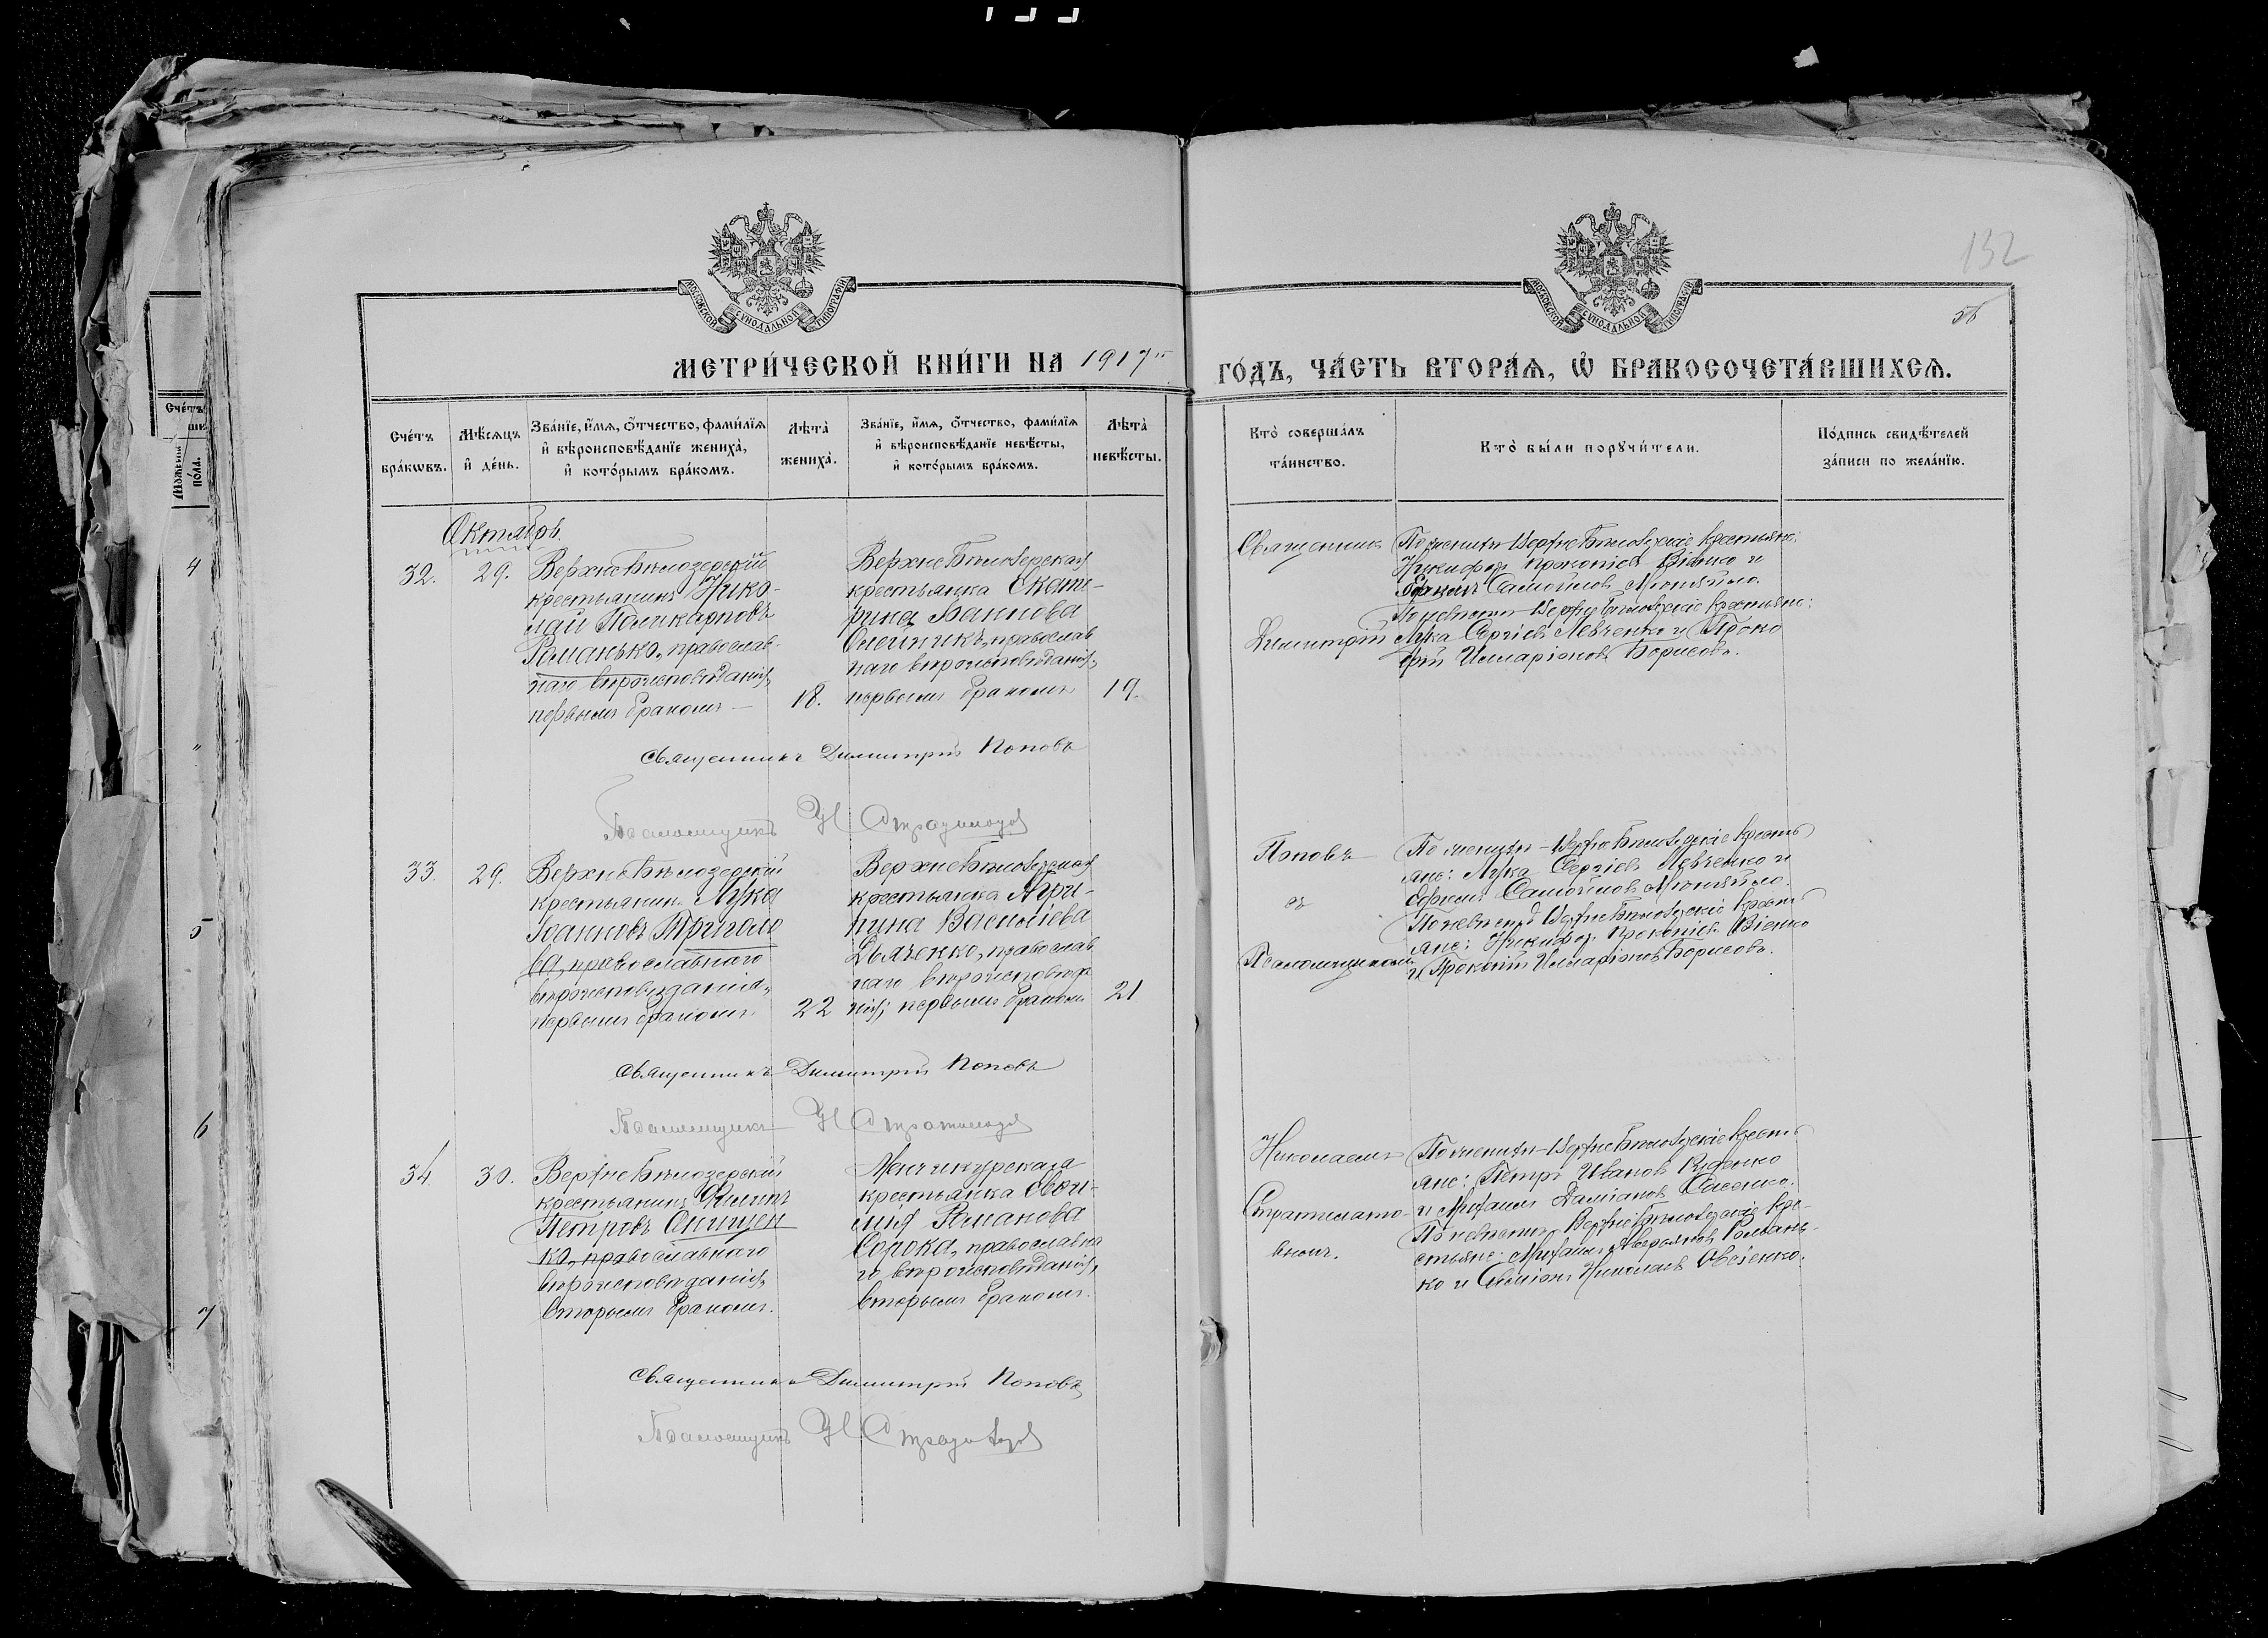 132
56
МОСКОВСКОЙ СѴНОДАЛЬНОЙ ТИПОГРАФІИ
МОСКОВСКОЙ СѴНОДАЛЬНОЙ ТИПОГРАФІИ
МЕТРИ́ЧЕСКОЙ КНИ́ГИ НА 1917 ГО́ДЪ, ЧА́СТЬ ВТОРА́Ѧ, Ѽ БРАКОСОЧЕТА́ВШИХСѦ.
Сче́тъ бра́кѡвъ.
Мѣ́сѧцъ и҆ де́нь.
Зва́нїе, и҆́мѧ, ѻ҆́тчество, фами́лїѧ
и҆ вѣроисповѣ́данїе жениха̀,
и҆ кото́рымъ бра́комъ.
Лѣта̀ жениха̀.
Зва́нїе, и҆́мѧ, ѻ҆́тчество, фами́лїѧ
и҆ вѣроисповѣ́данїе невѣ́сты,
и҆ кото́рымъ бра́комъ.
Лѣта̀ невѣ́сты.
Кто̀ соверша́лъ та́инство.
Кто̀ бы́ли порꙋчи́тели.
По́дпись свидѣ́телей за́писи по жела́нїю.
Октябрь.
32.
29.
Верхнебѣлозерскій
крестьянинъ Нико-
лай Поликарповъ
Романько, православ-
наго вѣроисповѣданія,
первымъ бракомъ
18.
Верхнебѣлозерская
крестьянка Екате-
рина
Олейникъ, православ
наго вѣроисповѣданія,
первымъ бракомъ
19.
Священникъ
Димитрій
По женихѣ Верхнебѣлозерскіе крестьяне:
Никифоръ Прокопіевъ Віенко и
Ефимъ Самойловъ
По невѣстѣ Верхнебѣлозерскіе крестьяне:
Лука Сергіевъ Левченко и Проко
пій Илларіоновъ Борисовъ.
Священникъ Димитрій Поповъ
Псаломщикъ Н Стратилатов
33.
29.
Верхнебѣлозерскій
крестьянинъ Лука
Іоанновъ Триголо
ва, православнаго
вѣроисповѣданія,
первымъ бракомъ
22
Верхнебѣлозерская
крестьянка Агри-
пина Василіева
Дьяченко, православ
наго вѣроисповѣда
нія, первымъ бракомъ
21
Поповъ
съ
Псаломщикомъ
По женихѣ Верхнебѣлозерскіе кресть
яне: Лука Сергіевъ Левченко и
Ефимъ Самойловъ
По невѣстѣ Верхнебѣлозерскіе кресть
яне: Никифоръ Прокопіевъ Віенко
и Прокопій Илларіоновъ Борисовъ.
Священникъ Димитрій Поповъ
Псаломщикъ Н Стратилатов
34.
30.
Верхнебѣлозерскій
крестьянинъ Филипъ
Петровъ Онищен
ко, православнаго
вѣроисповѣданія,
вторымъ бракомъ.
Менчикурская
крестьянка Евфи-
мія Романова
Сорока, православна
го вѣроисповѣданія,
вторымъ бракомъ.
Николаемъ
Стратилато-
вымъ.
По женихѣ Верхнебѣлозерскіе кресть
яне: Петръ Ивановъ Руденко
и Михаилъ Даміановъ
По невѣстѣ Верхнебѣлозерскіе кре-
стьяне: Михаилъ Аверьяновъ Романь-
ко и Симеонъ Николаевъ Овсіенко.
Священникъ Димитрій Поповъ
Псаломщикъ Н Стратилатов
Сче́тъ
по́ла.
4
5
6
7